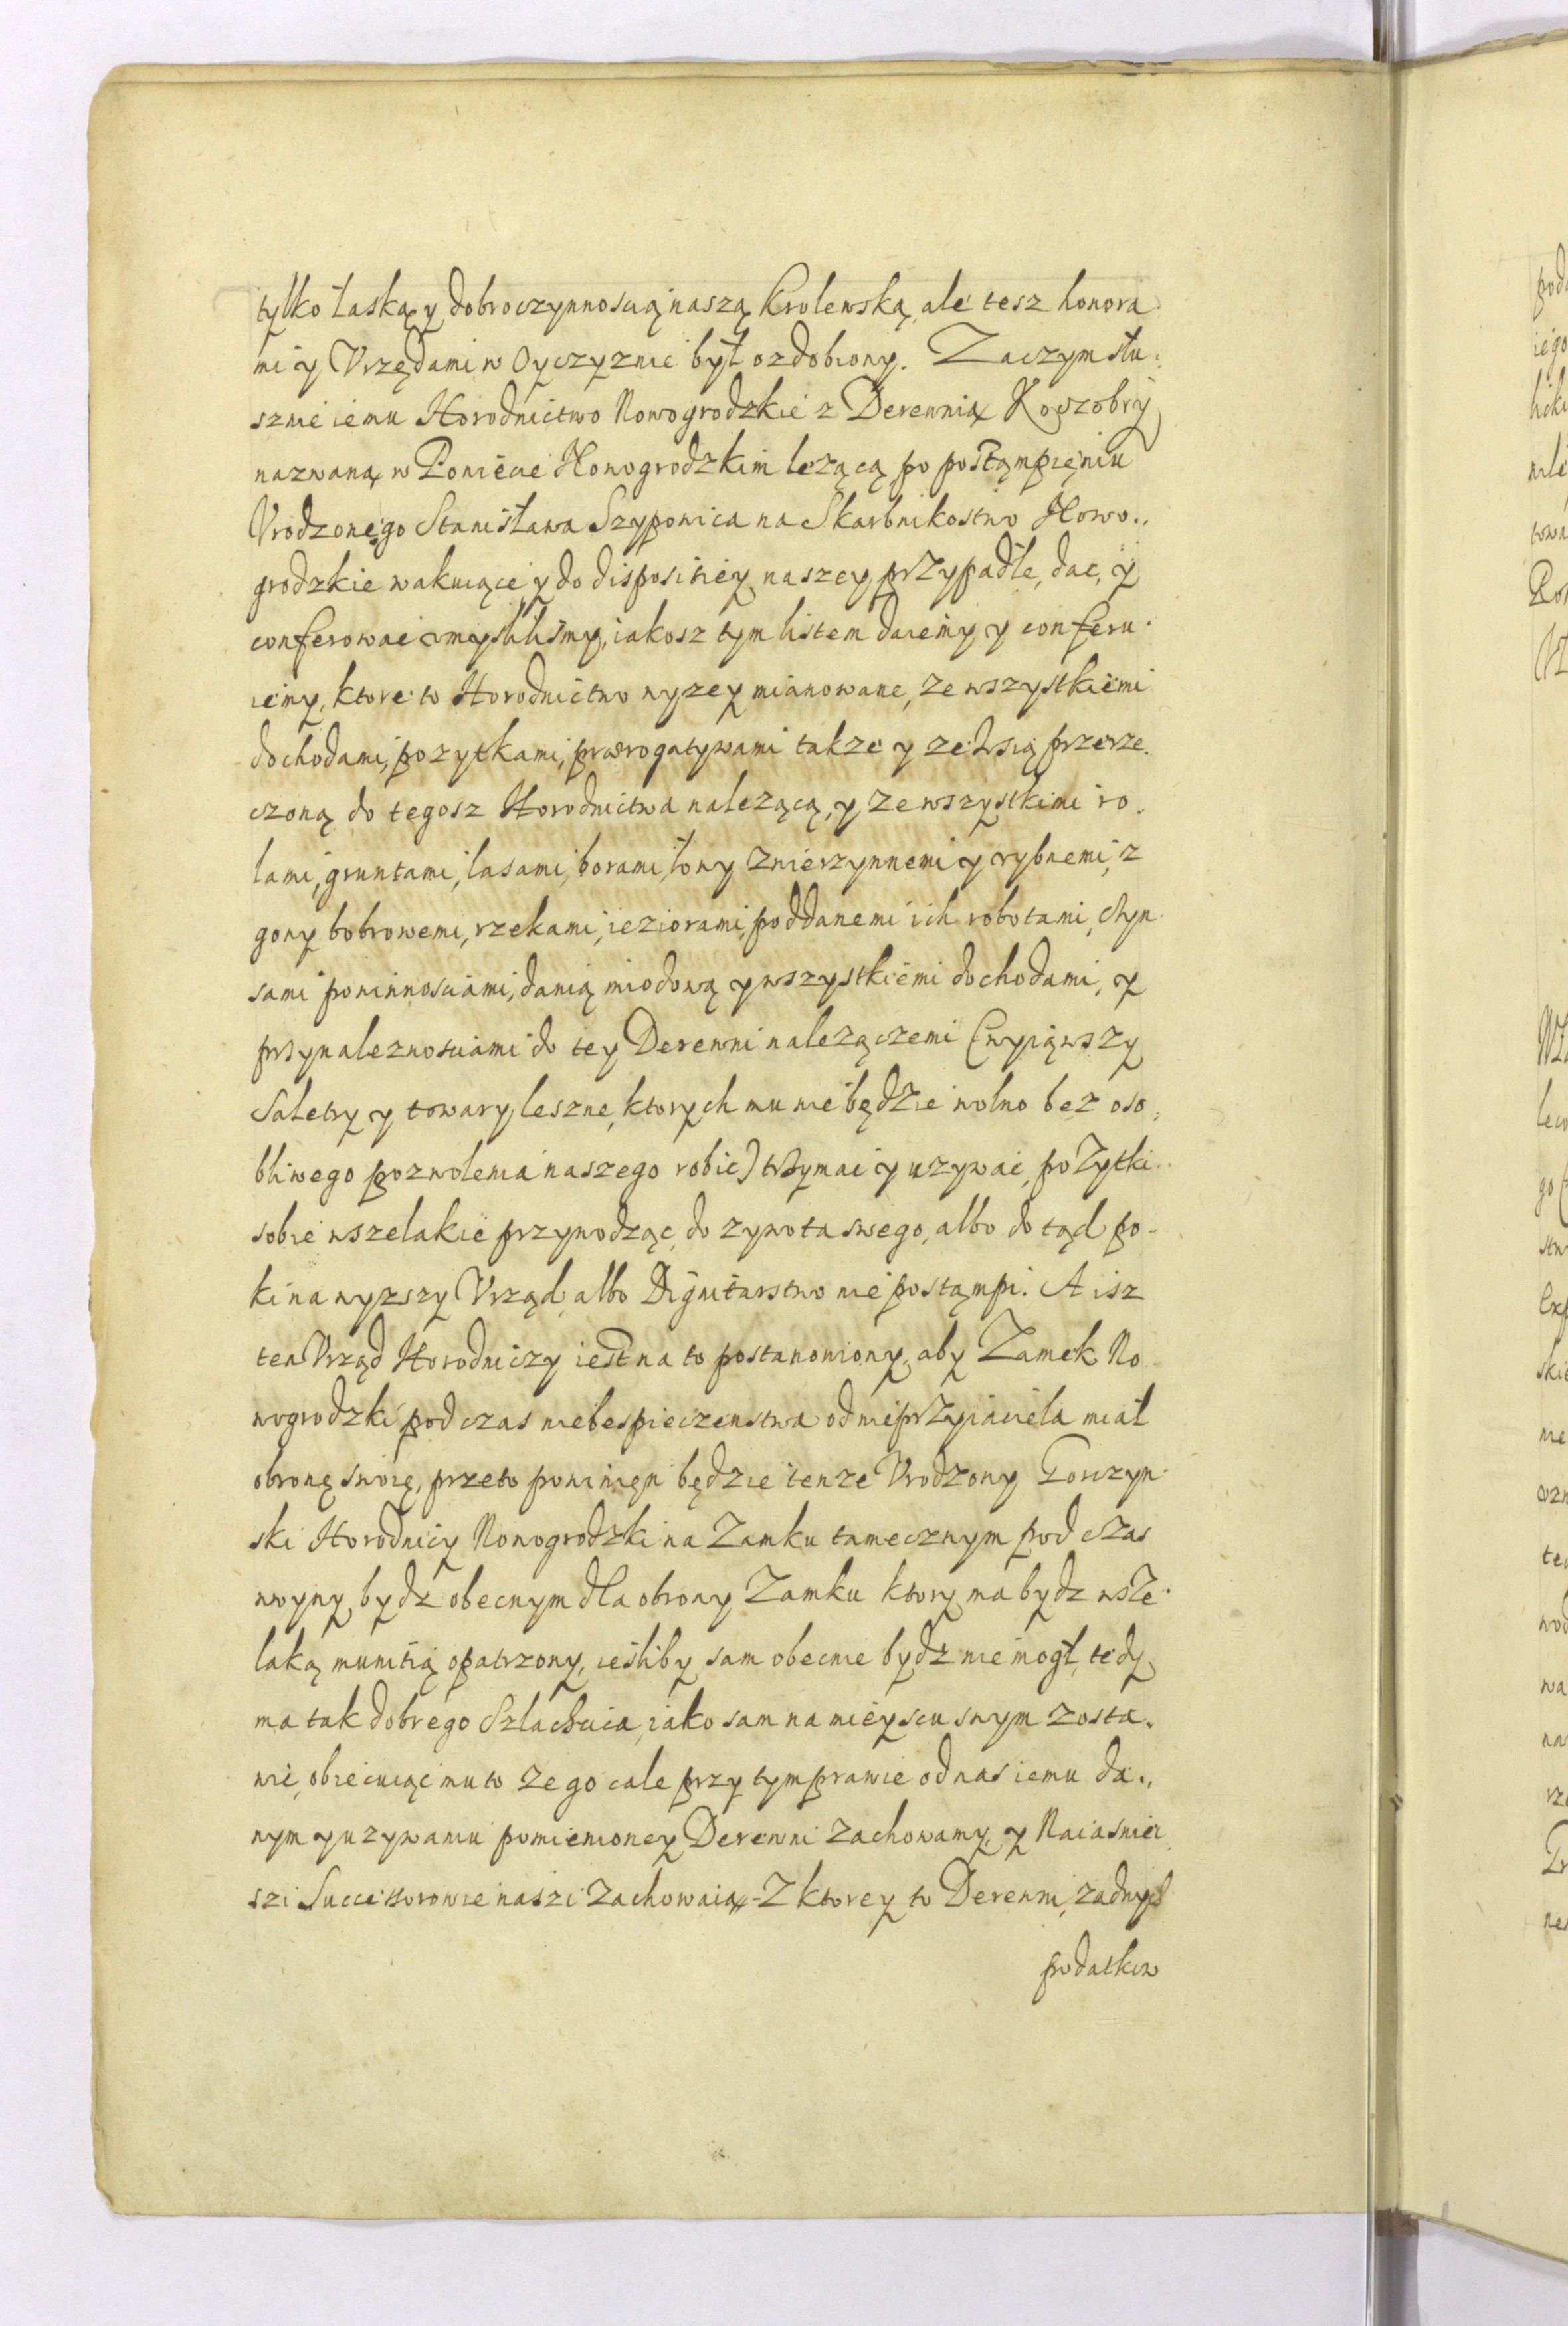 tylko łaską y dobroczynnoscią naszą Krolewską, ale tesz honora
mi y Vrzędami w Oyczyznie był ozdobiony. Zaczym słu
sznie iemu Horodnictwo Nowogrodzkie z Derewnią Koczobry
nazwaną w Powiecie Nowogrodzkim leżącą po postąmpięniu
Vrodzonego Stanisława Szyponica na Skarbnikostwo Nowo„
grodzkie wakuiące y do dispositiey naszey przypadłe, dac, y
conferowac vmyslilismy, iakosz tym listem daiemy y conferu
iemy, ktore to Horodnictwo wyzey mianowane, ze wszystkiemi
dochodami, pozytkami, prærogatywami takze y ze Wsią przerze
czoną do tegosz Horodnictwa nalezącą, y ze wszystkimi ro
lami, gruntami, lasami, borami, łowy zwierzynnemi y rybnemi, z
gony bobrowemi, rzekami, ieziorami, poddanemi ich robotami, chyn
sami powinnosciami, danią miodową y wszystkiemi dochodami, y
przynaleznosciami do tey Derewni nalezączemi (wyiąwszy
Saletry y towary leszne, ktorych mu nie będzie wolno bez oso
bliwego pozwolenia naszego robic) trzymac y uzywac, pożytki
sobie wszelakie przywodząc, do zywota swego, albo do tąd po-
ki na wyzszy Vrząd, albo Dignitarstwo nie postąmpi. A isz
ten Vrząd Horodniczy iest na to postanowiony, aby Zamek No
wogrodzki pod czas niebespieczenstwa od nieprzyiaciela miał
obronę swoię, przeto powinięn będzie tenze Vrodzony Gorczyn
ski Horodnicy Nowogrodzki na Zamku tamecznym pod czas
woyny bydz obecnym dla obrony Zamku ktory ma bydz wsze
laką munitią opatrzony, iesliby sam obecnie bydz nie mogł, tedy
ma tak dobrego Szlachcica, iako sam na mieyscu swym zosta„
wic, obiecuiąc mu to ze go cale przy tym prawie od nas iemu da„
nym y uzywaniu pomienioney Derewni zachowamy, y Naiasniei
szi Successorowie naszi zachowaią. Z ktorey to Derewni, zadnych
podatkow